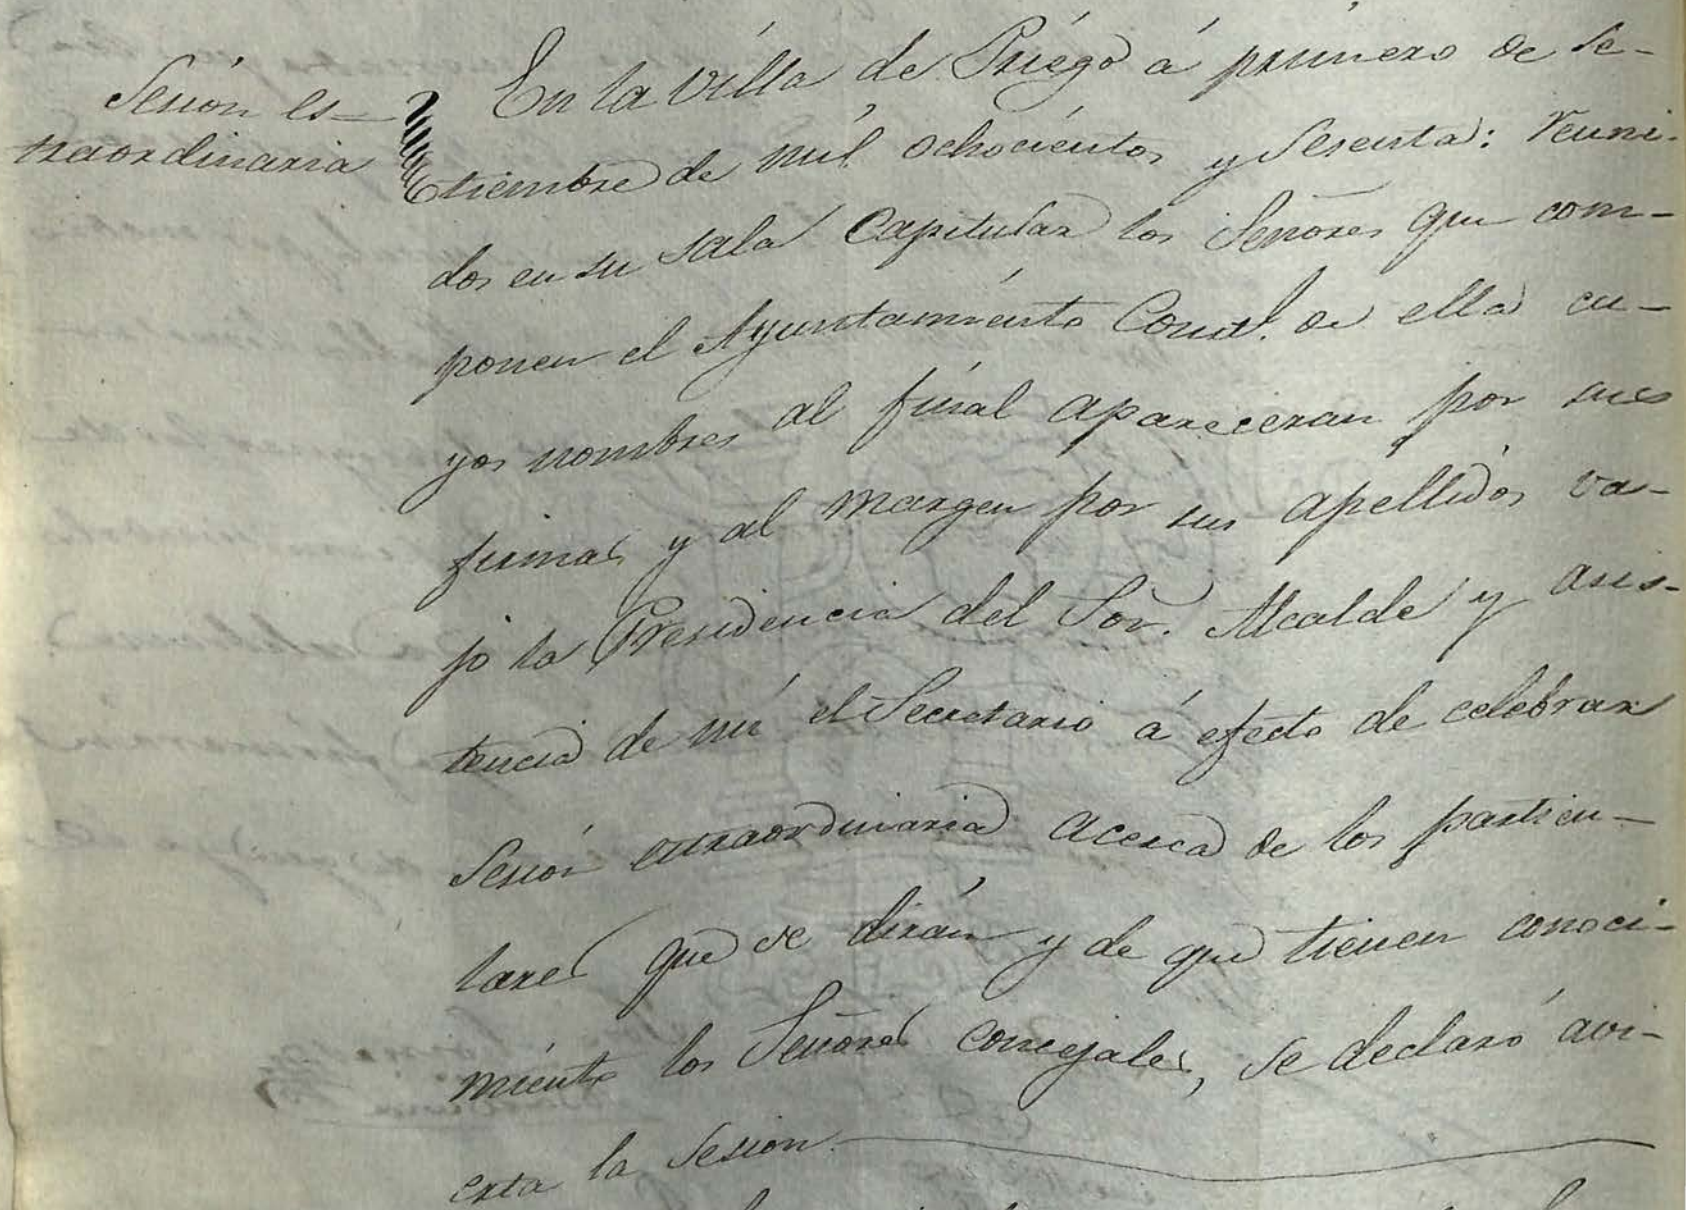 Sesion es=
traordinaria
En la Villa de Priego á primero de Se-
tiembre de mil ochocientos y Sesenta: reuni-
dos en su Sala Capitular los Señores que com-
ponen el Ayuntamiento Const.l de ella cu-
yos nombres al final apareceran por sus
firmas y al margen por sus apellidos va-
jo la Presidencia del Sor. Alcalde y asis-
tencia de mi el Secretario á efecto de celebrar
Sesion extraordinaria acerca de los particu-
lares que se dirán y de que tienen conoci-
miento los Señores concejales, se declaró avi-
erta la Sesion.